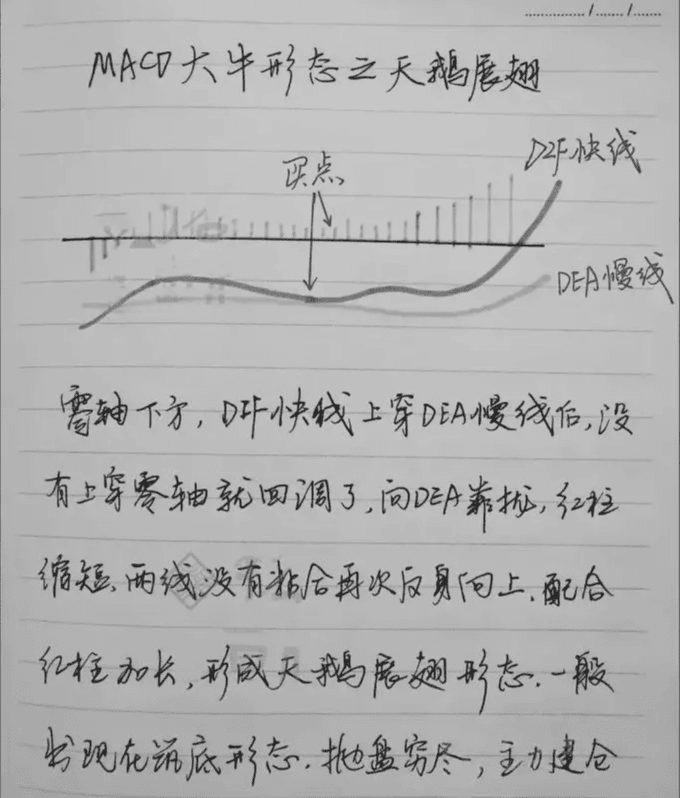 MACD大牛形态之天鹅展翅
DIF快线
买点
DEA慢线
零轴下方，DIF快线上穿DEA慢线后，没
有上穿零轴就回调了，向DEA靠拢，红柱
缩短、两线没有粘合再次反身向上，配合
红柱加长，形成天鹅展翅形态．一般
出现在筑底形态．抛盘穷尽，主力建仓